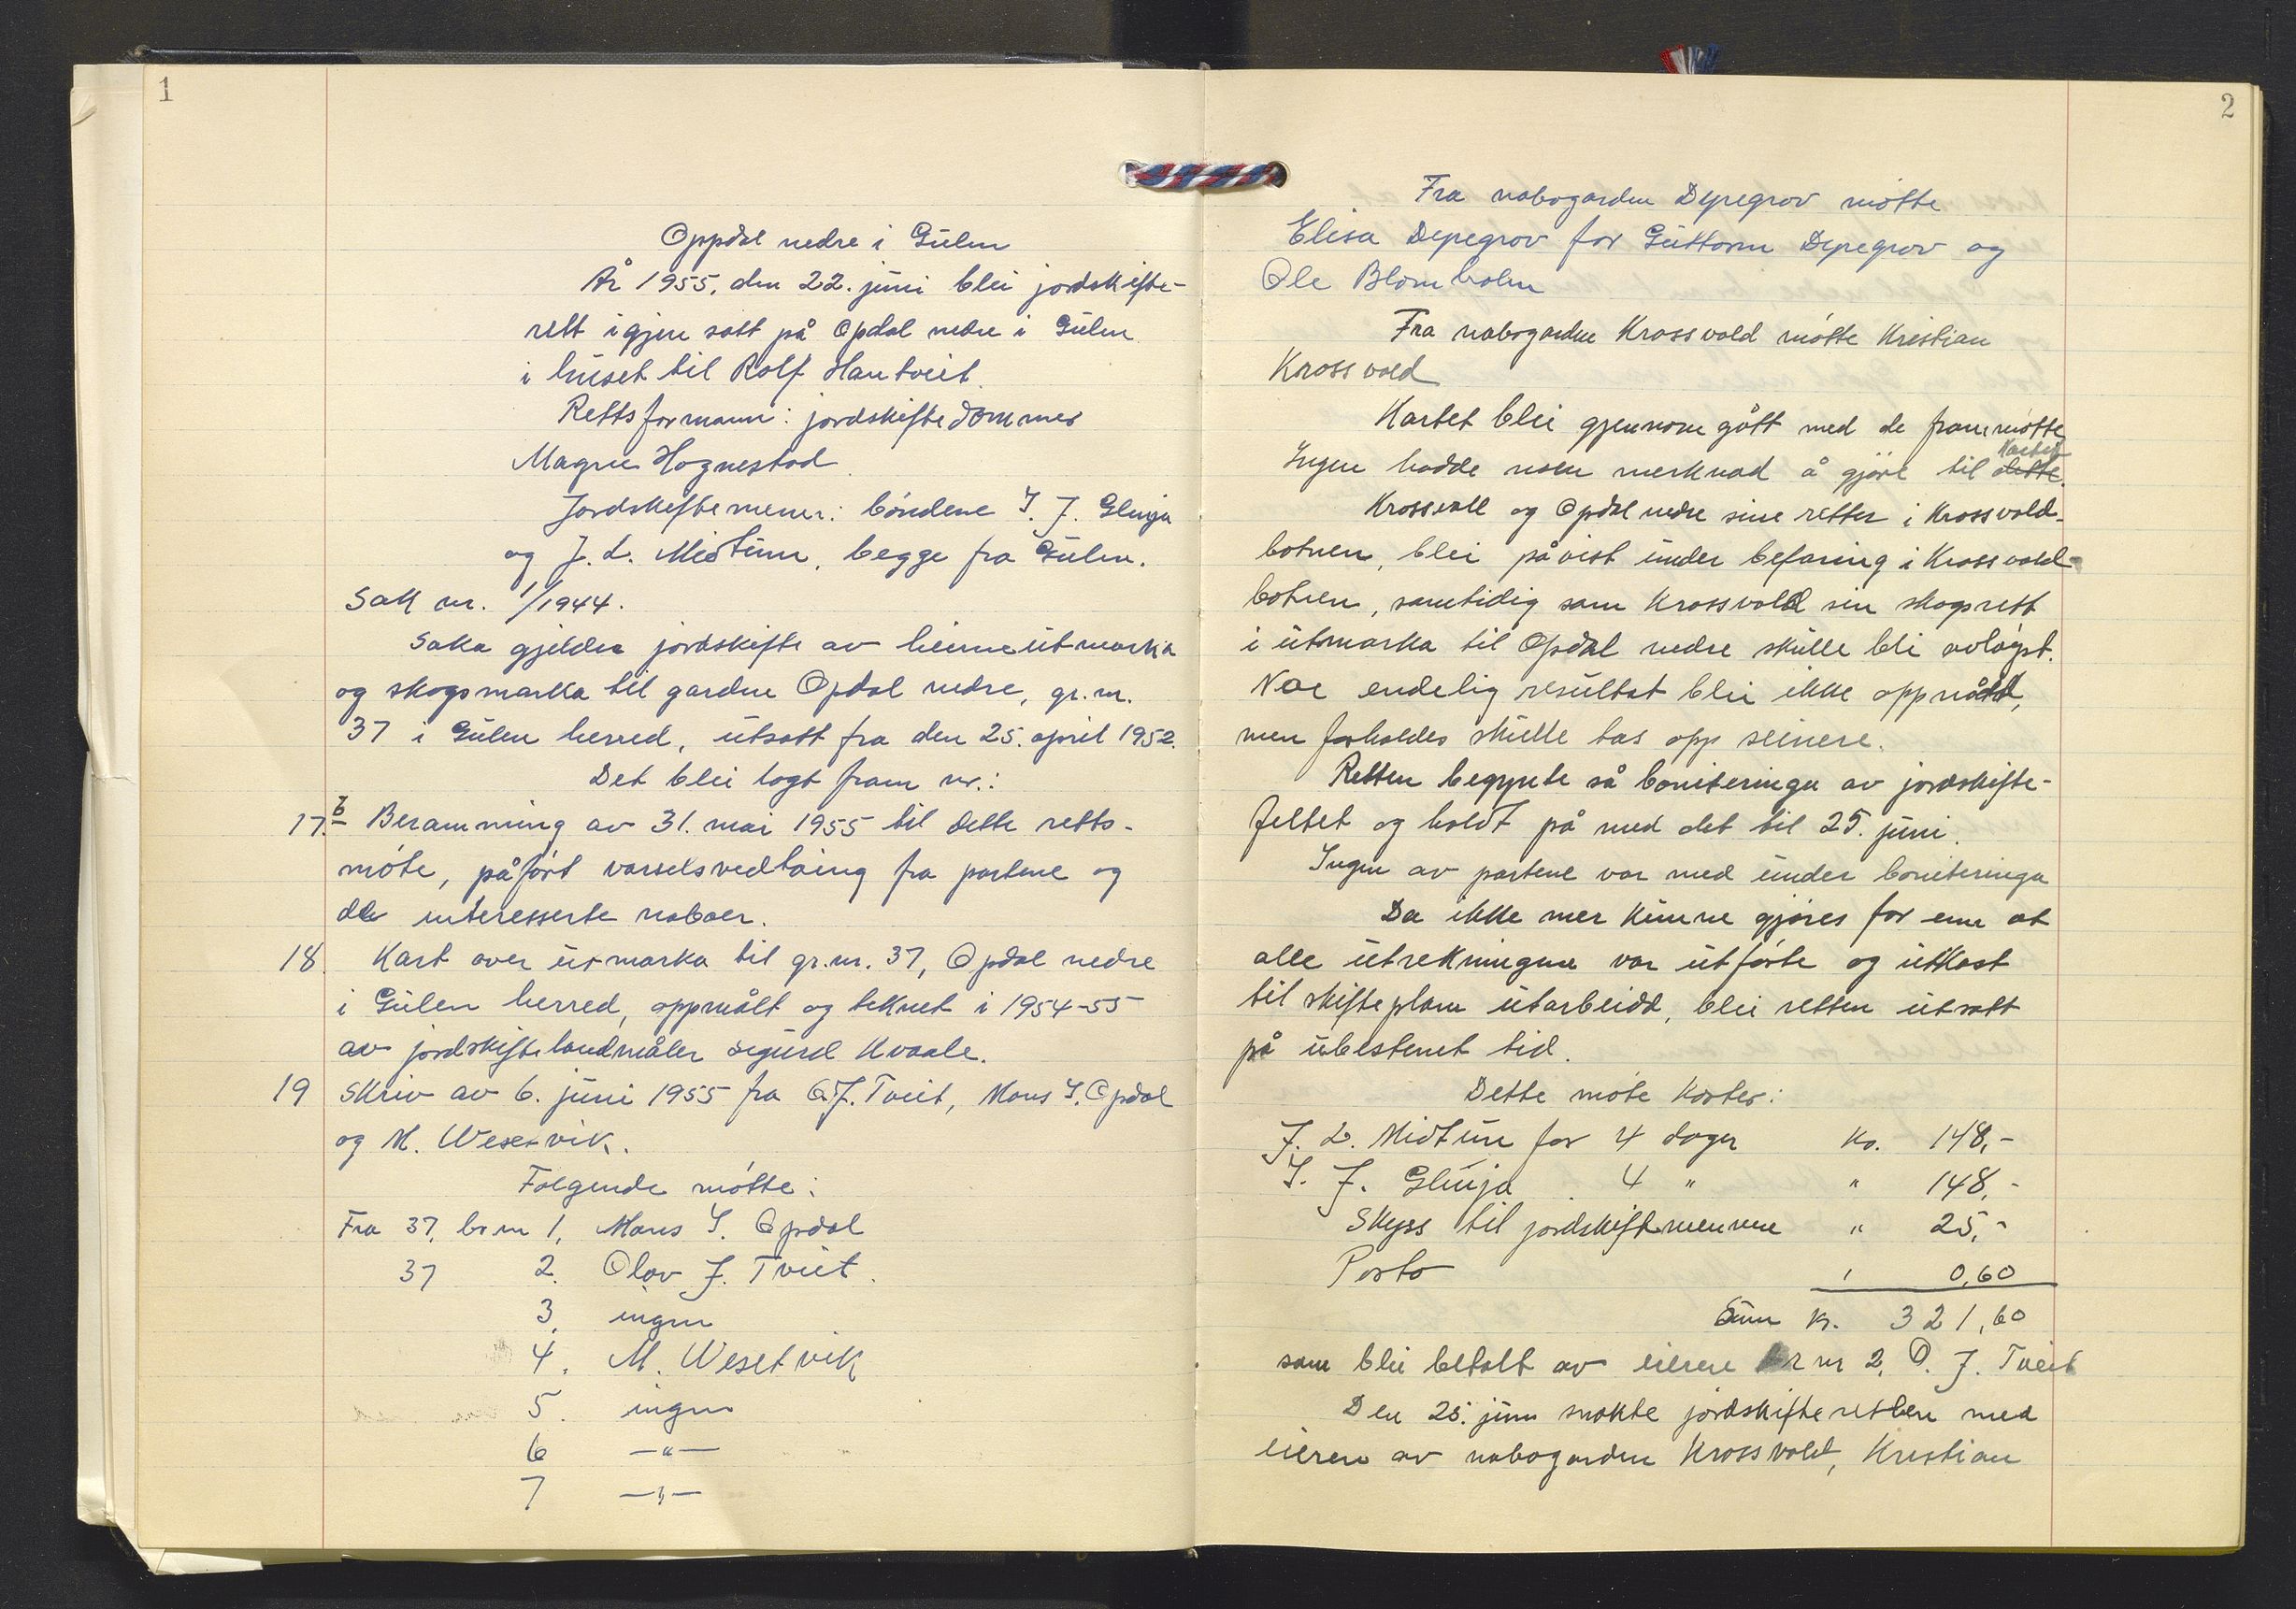 1
Oppdal nedre i Gulen
År 1955, den 22. juni blei jordskifte-
rett igjen satt på Opdal nedre i Gulen
i huset til Rolf Hantveit.
Rettsformann: jordskiftedommer
Magne Hognestad.
Jordskiftemenn: bøndene I. J. Glenja
og J. L. Midtun, begge fra Gulen.
Sak nr. 1/1944.
Saka gjelder jordskifte av heimeutmarka
og skogsmarka til garden Opdal nedre, gr.nr.
37 i Gulen herred, utsatt fra den 25. april 1952.
Det blei lagt fram nr.:
17.b Beramming av 31. mai 1955 til dette retts-
møte, påført varselsvedtaing fra partene og
de interesserte naboer.
18. Kart over utmarka til gr.nr. 37, Opdal nedre
i Gulen herred, oppmålt og teknet i 1954-55
av jordskiftelandmåler Sigurd Kvaale.
19 Skriv av 6. juni 1955 fra O.J. Tveit, Mons I. Opdal
og M. Wesetvik.
Følgende møtte:
Fra 37, br.nr 1, Mons I. Opdal
37 2. Olav J. Tveit.
3. ingen
4. M. Wesetvik
5. ingen
6 —"—
7 —"—
2
Fra nabogarden Depegrov møtte
Elisa Depegrov for Guttorm Depegrov og
Ole Blomholm
Fra nabogarden Krossvold møtte Kristian
Krossvold
Kartet blei gjennomgått med de frammøtte
Ingen hadde noen merknad å gjøre til dette. kartet
Krossvoll og Opdal nedre sine retter i Krossvold-
botnen, blei påvist under befaring i Krossvold-
botnen, samtidig som Krossvold sin skogsrett
i utmarka til Opdal nedre skulle bli avløyst.
Noe endelig resultat blei ikke oppnådd,
men forholdes skulle tas opp seinere.
Retten begynte så boniteringa av jordskifte-
feltet og holdt på med det til 25. juni.
Ingen av partene var med under boniteringa
Da ikke mer kunne gjøres før enn at
alle utrekningene var utførte og utkast
til skifteplan utarbeidd, blei retten utsatt
på ubestemt tid.
Dette møte koster:
J. L. Midtun for 4 dager kr. 148,-
I. J. Glenja " 4 " " 148,-
Skyss til jordskiftemennene " 25,-
Porto " 0,60
Sum kr. 321,60
som blei betalt av eieren br nr 2, O. J. Tveit
Den 25. juni snakte jordskifteretten med
eieren av nabogarden Krossvold, Kristian